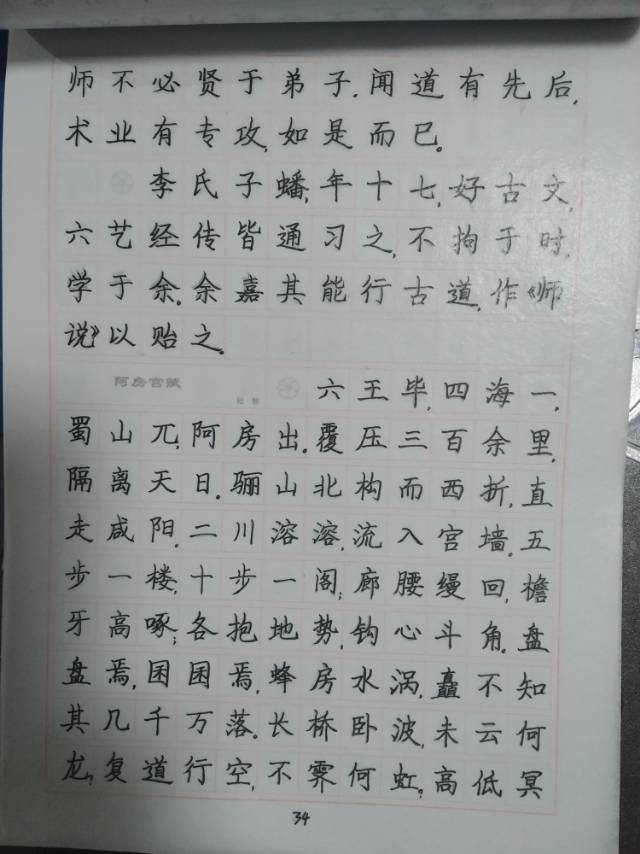 师不必贤于弟子,闻道有先后,
术业有专攻,如是而已。
李氏子蟠,年十七,好古文,
六艺经传皆通习之,不拘于时,
学于余。余嘉其能行古道,作《师
说》以贻之。
阿房宫赋 杜牧 六王毕,四海一,
蜀山兀,阿房出。覆压三百余里,
隔离天日。骊山北构而西折,直
走咸阳。二川溶溶,流入宫墙。五
步一楼,十步一阁;廊腰缦回,檐
牙高啄;各抱地势,钩心斗角。盘
盘焉,囷囷焉,蜂房水涡,矗不知
其几千万落。长桥卧波,未云何
龙?复道行空,不霁何虹?高低冥
34